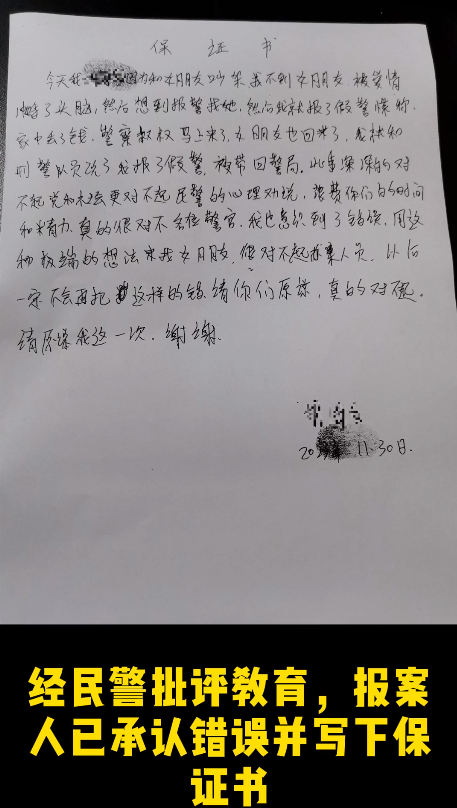 保 证 书
今天我因为和女朋友吵架找不到女朋友,被爱情
冲昏了头脑,然后想到报警找她,然后我就报了假警谎称
家中丢了钱,警察叔叔马上来了,女朋友也回来了,我就和
刑警队员说了我报了假警,被带回警局。此事深深的对
不起党和社会更对不起民警的心理劝说,浪费你们的时间
和精力,真的很对不起警官,我也意识到了错误,用这
种极端的想法来找女朋友,很对不起办案人员,以后
一定不会再犯这样的错请你们原谅,真的对不起。
请原谅我这一次,谢谢.
20 11.30日.
经民警批评教育,报案
人已承认错误并写下保
证书